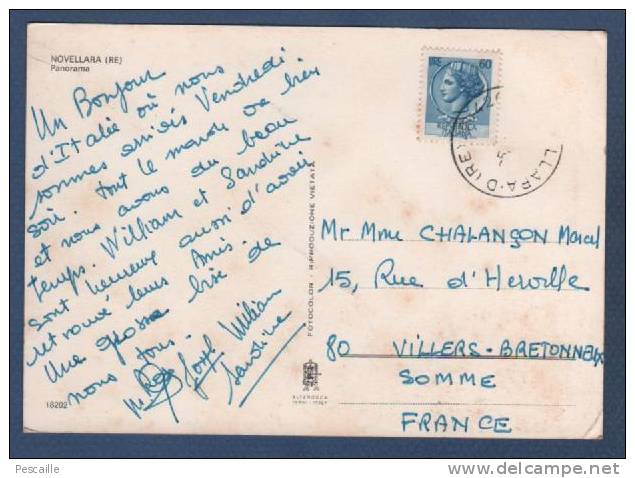 NOVELLARA (RE)
Panorama
Un Bonjour
d'Italie où nous
sommes arrivés Vendredi
soir. tout le monde va bien
et nous avons du beau
temps. William et Sandrine
sont heureux aussi d'avoir
retrouvé leurs Amis.
Une grosse bise de
nous tous.
Joseph William
Sandrine
18202
FOTOCOLOR - RIPRODUZIONE VIETATA
ALTEROCCA
TERNI - ITALY
LIRE 60
LLARA·D (RE)
Mr Mme CHALANÇON Marcel
15, Rue d'Herville
80 VILLERS-BRETONNEUX
SOMME
FRANCE
Pescaille
www.delcampe.net